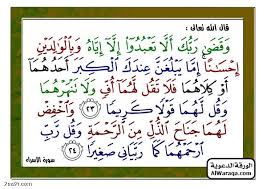 قال الله تعالى :
وَقَضَىٰ رَبُّكَ أَلَّا تَعْبُدُوٓا۟ إِلَّآ إِيَّاهُ وَبِٱلْوَٰلِدَيْنِ
إِحْسَـٰنًا إِمَّا يَبْلُغَنَّ عِندَكَ ٱلْكِبَرَ أَحَدُهُمَآ
أَوْ كِلَاهُمَا فَلَا تَقُل لَّهُمَآ أُفٍّ وَلَا تَنْهَرْهُمَا
وَقُل لَّهُمَا قَوْلًا كَرِيمًا ٢٣ وَٱخْفِضْ
لَهُمَا جَنَاحَ ٱلذُّلِّ مِنَ ٱلرَّحْمَةِ وَقُل رَّبِّ
ٱرْحَمْهُمَا كَمَا رَبَّيَانِى صَغِيرًا ٢٤
سورة الإسراء
الورقة الدعوية
AlWaraqa.com